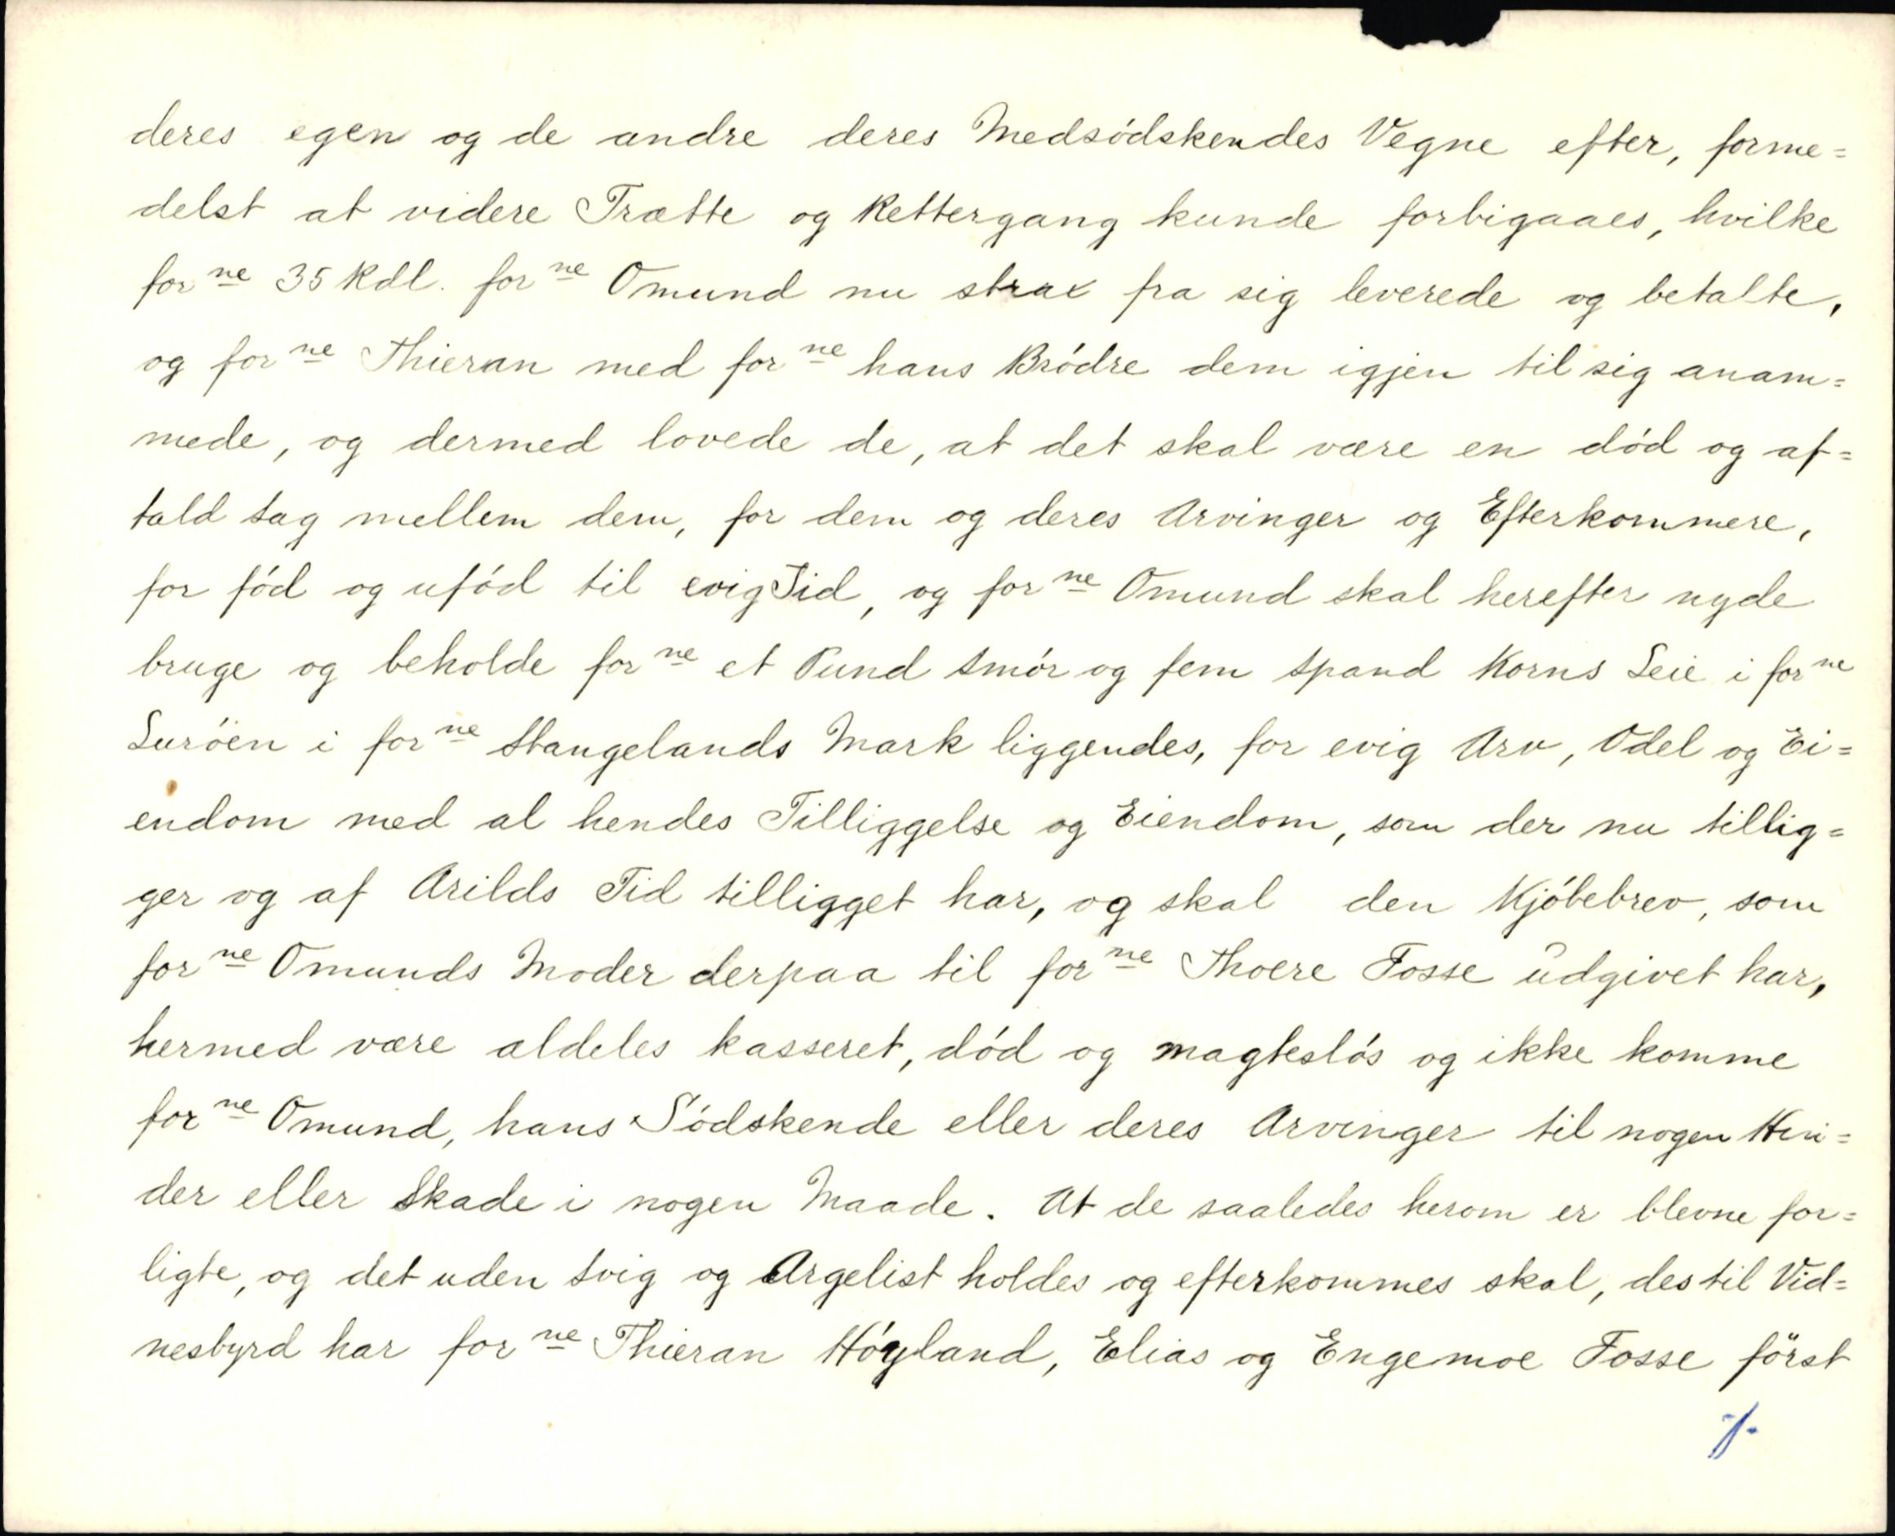 deres egen og de andre deres Medsódskendes Vegne efter, forme=
delst at videre Trætte og Rettergang kunde forbigaaes, hvilke
forne 35 Rdl. forne Omund nu strax fra sig leverede og betalte,
og forne Thieran med forne hans Bródre dem igjen til sig anam=
mede, og dermed lovede de, at det skal være en dód og af=
tald Sag mellem dem, for dem og deres Arvinger og Efterkommere,
for fód og ufód til evig Tid, og forne Omund skal herefter nyde
bruge og beholde forne et Pund Smór og fem Spand Korns Leie i forne
Luröen i forne Stangelands Mark liggendes, for evig Arv, Odel og Ei=
endom med al hendes Tilliggelse og Eiendom, som der nu tillig=
ger og af Arilds Tid tilligget har, og skal den Kjóbebrev, som
forne Omunds Moder derpaa til forne Thoere Fosse udgivet har,
hermed være aldeles kasseret, dód og magteslós og ikke komme
forne Omund, hans Sódskende eller deres Arvinger til nogen Hin=
der eller Skade i nogen Maade. At de saaledes herom er blevne for=
ligte, og det uden Svig og Argelist holdes og efterkommes skal, des til Vid=
nesbyrd har forne Thieran Hóyland, Elias og Engemoe Fosse först